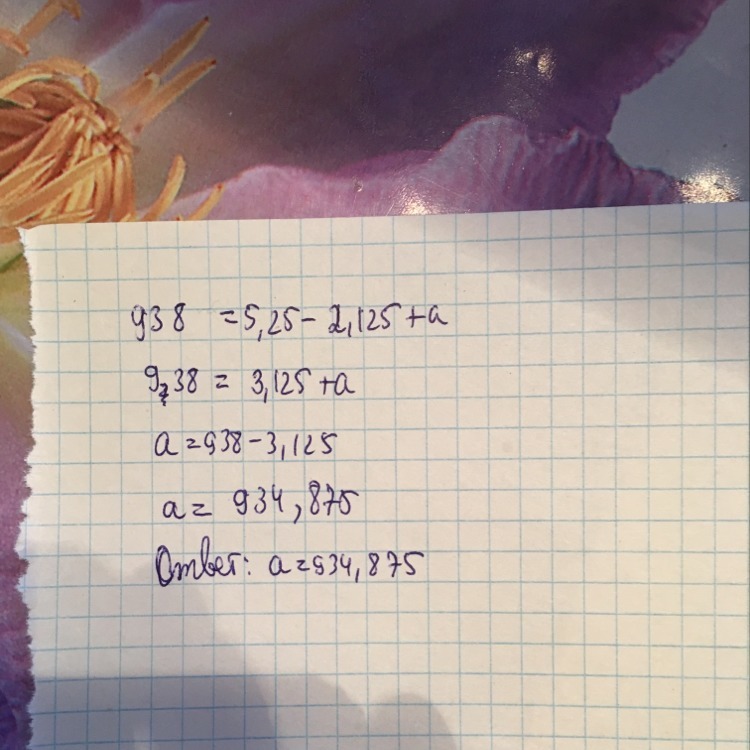 938 = 5,25 - 2,125 + a
938 = 3,125 + a
a = 938 - 3,125
a = 934,875
Ответ: a = 934,875